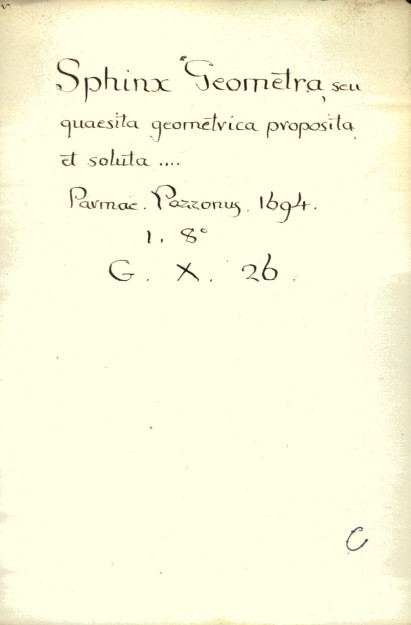 Sphinx Geometra, seu
quaesita geometrica proposita
et soluta ....
Parmae. Pazzonus. 1694.
1. 8°
G. X. 26.
C